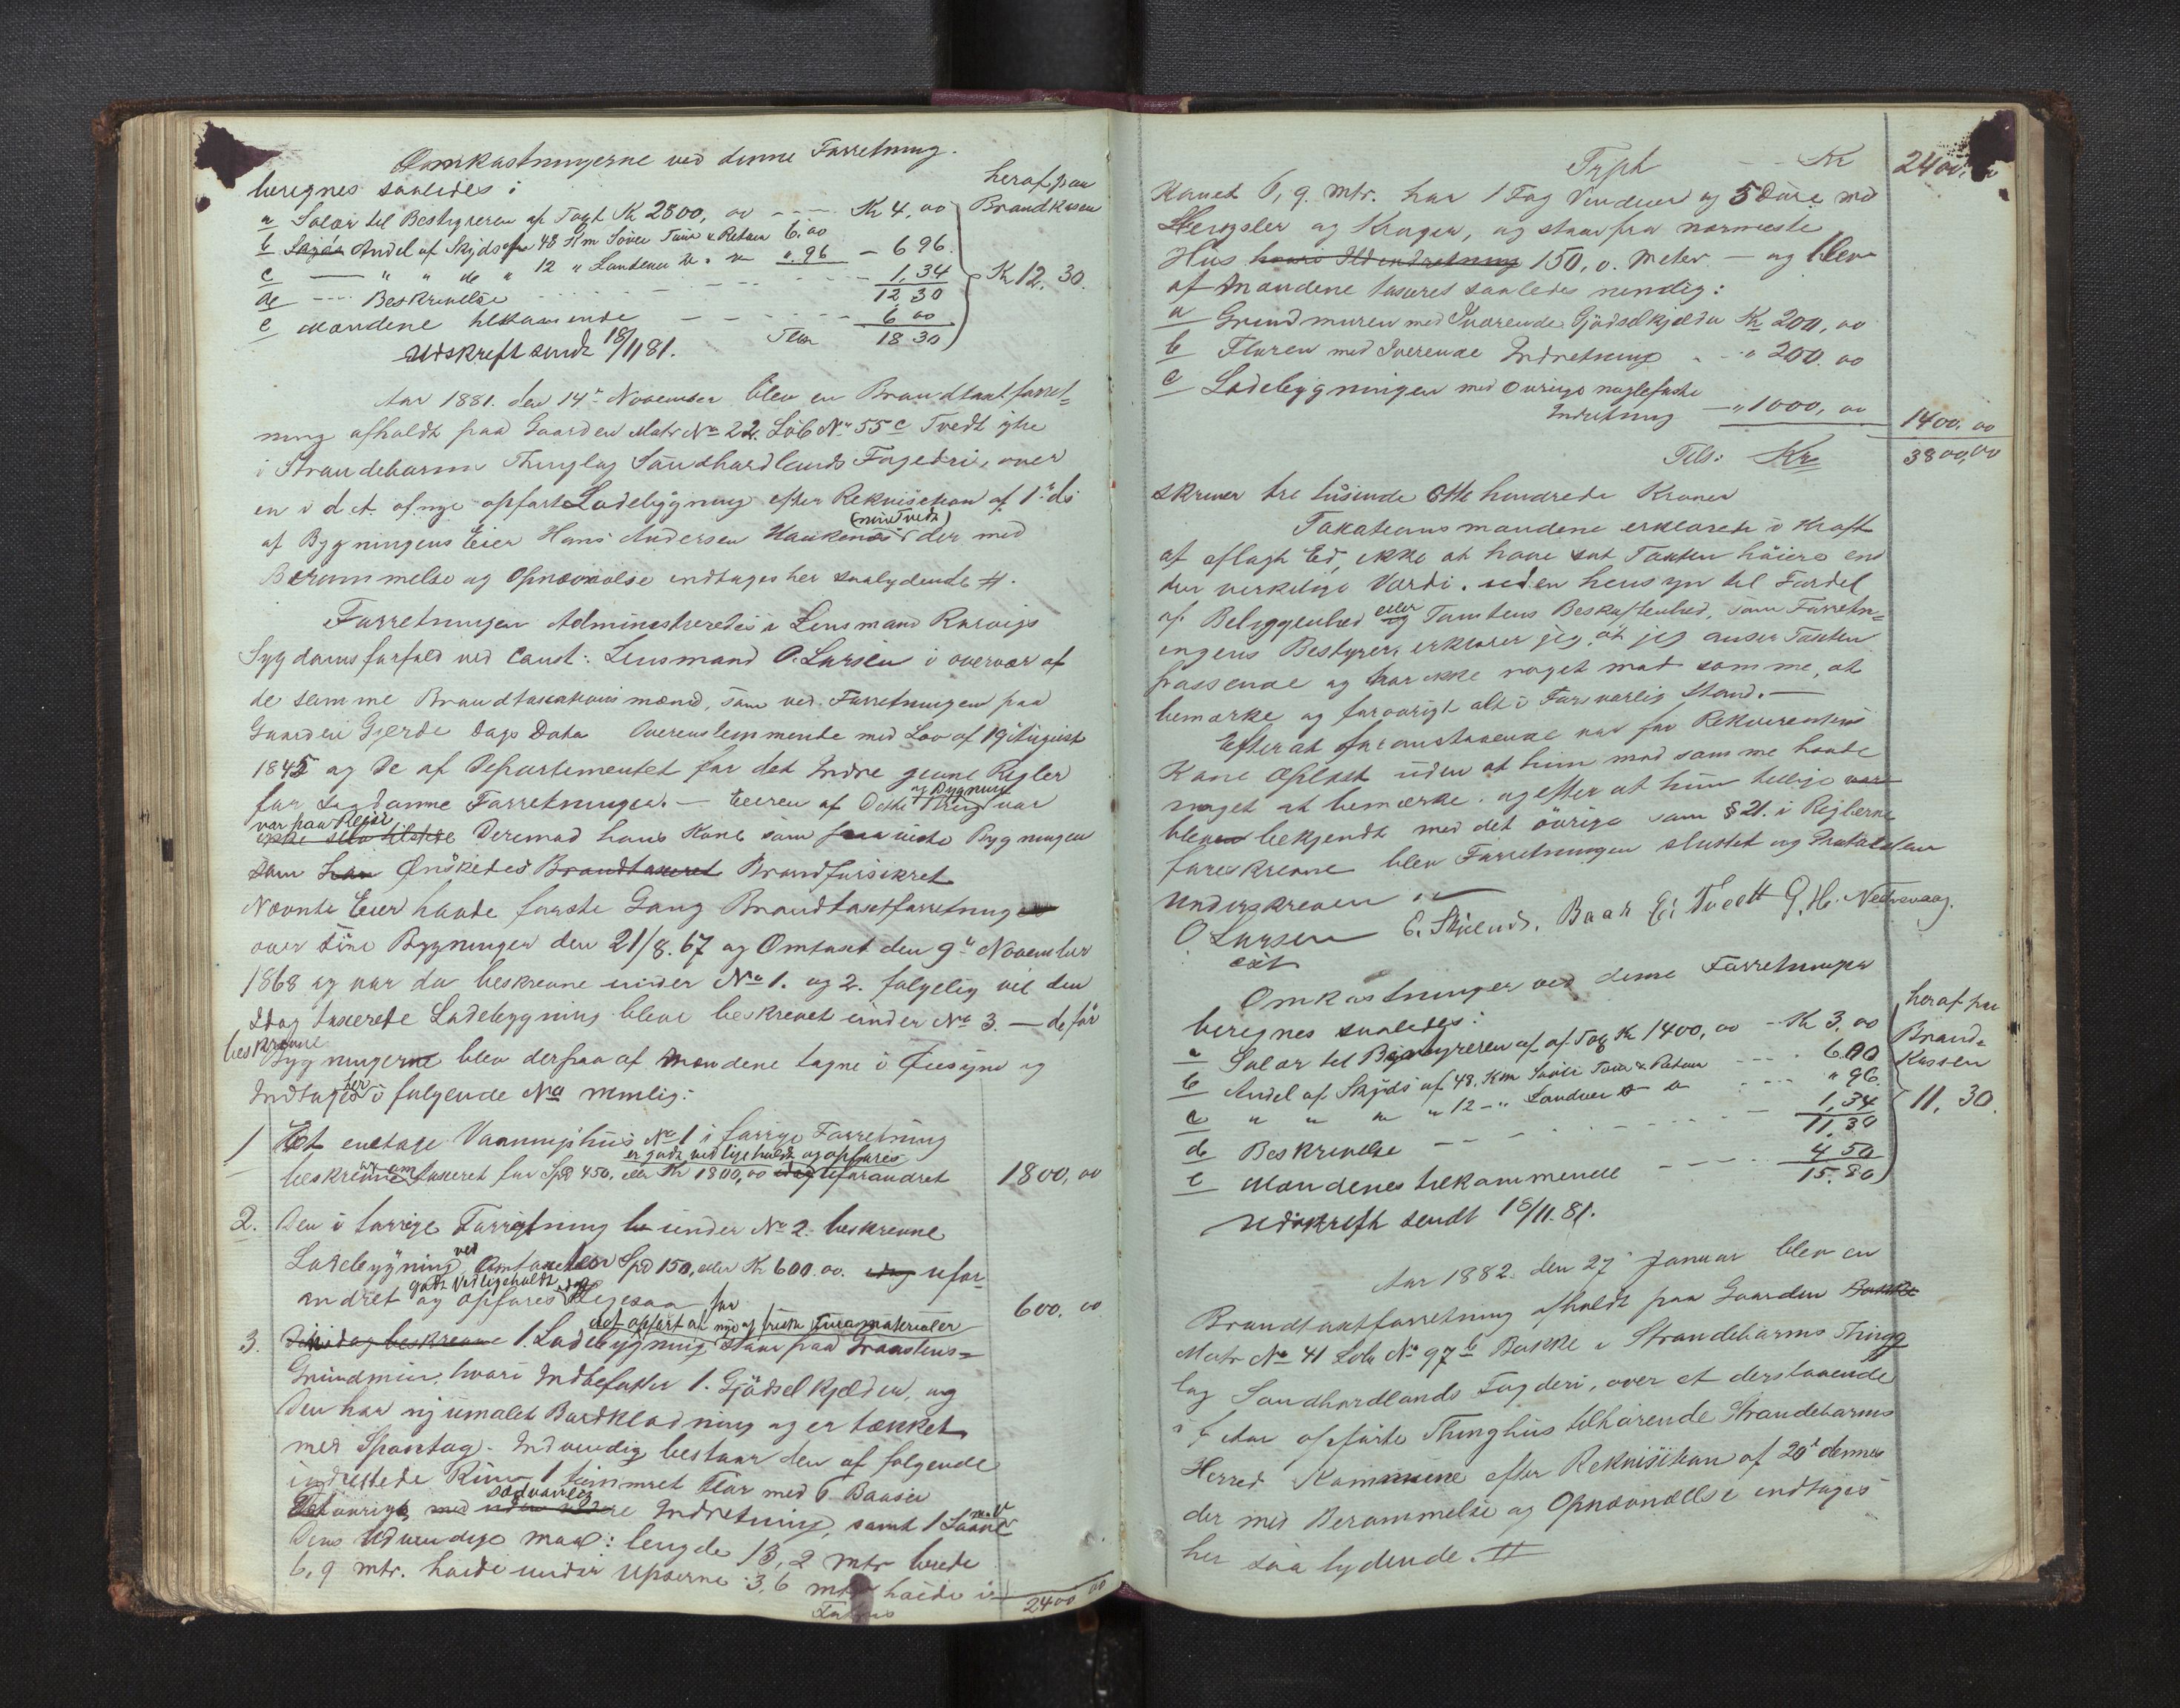 Omkostningerne ved denne Forretning.
beregnes saaledes:
a Salær til Bestyreren af Taxt Kr 2500, 00 - - - Kr 4, 00
b Andel af Skyds for 48 Km Søvei Tour & Retour 6.00
c — " " de " 12 " Landevei " " ".96 — 6 96.
d ---- Beskrivelse - - - - 1,34
12 30
e Mændene tilkommende - - - - - 6 00
Tils 18 30
heraf paa
Brandkassen
Kr 12. 30.
Udskrift sendt 18/11 81.
Aar 1881. den 14de November blev en Brandtaxtforret-
ning afholdt paa Gaarden Matr No 22. Löb No 55c Tvedt ytre
i Strandebarm Thinglag Söndhordlands Fogderi, over
en i d. A. af nye opført Ladebygning efter Rekvisition af 1ste ds
af Bygningens Eier Hans Andersen Haukenæs (nu Tvedt) der med
Berammelse og Opnævnelse indtages her saalydende #.
Forretningen Administreredes i Lensmand Rarvigs
Sygdomsforfald ved Const: Lensmand O. Larsen i overvær af
de samme Brandtaxationsmænd, som ved Forretningen paa
Gaarden Gjerde Dags Dato Overenstemmende med Lov af 19 August
1845 og De af Departementet for det Indre givne Regler
for sagdanne Forretninger. — Eieren af Dette Brug og Bygning var
var paa Reise
ikke selv tilstede Derimod hans Kone som foreviste Bygningen
som han Ønskedes Brandtaxeret Brandforsikret
Nævnte Eier havde første Gang Brandtaxtforretning
over sine Bygninger den 21/8. 67 og Omtaxt den 9de November
1868 og var da beskrevne under No 1. og 2. følgelig vil den
Idag taxerede Ladebygning blive beskrevet under No 3. — de før
beskrevne
Bygningerne blev derpaa af Mændene tagne i Øiesyn og
Indtages her i følgende No nemlig:
1 Et enetages Vaaningshus No 1 i forrige Forretning
er godt vedligeholdt og opføres
beskrevne og omtaxeret for Spd 450, eller Kr 1800,00 idag uforandret 1800, 00
2. Den i forrige Forretning under No 2. beskrevne
Ladebygning ved Omtaxten Spd 150, eller Kr 600.00. idag ufor-
godt Vedligeholdt
andret og opføres Ligesaa for 600. 00
det opført af nye af friske Furumaterialer
3. Den idag beskrevne 1. Ladebygning staar paa Graastens-
Grundmur, hvori Indbefattes 1. Gjødselkjelder, og
Den har ny umalet Bordklædning og er tækket
med Spontag. Indvendig bestaar den af følgende
indrettede Rum 1 tømmret Flor med 6 Baaser
sædvanlig
Det øvrige med Indretning, samt 1 Laave
Dens Udvendige maal: lengde 13,2 mtr brede
6,9 mtr. høide under Upserne 3,6 mtr høide i
Trspt 2400 00
Trpt - - Kr 2400, 00
Kanet 6, 9. mtr. har 1 Fag Vinduer og 5 Døre med
Hengsler og Kroger, og staar fra nærmeste
Hus hvori Ildindretning 150, 0. Meter — og blev
af Mændene taxeret saaledes nemlig:
a Grundmuren med Iværende Gjødselkjelder Kr 200, 00
b Floren med Iverende Indretning - - " 200. 00
c Ladebygningen med øvrige naglefaste
Indretning — " 1000, 00 1400. 00
Tils: Kr 3800,00
skriver tre tusinde Otte hundrede Kroner
Taxationsmændene erklærede i Kraft
af aflagt Ed, ikke at have sat Taxten høiere end
den virkelige Værdi. uden hensyn til Fordel
af Beliggenhed eller Tomtens Beskaffenhed, som Forretn-
ingens Bestyrer, erklærer jeg, at jeg anser Taxten
passende og har ikke noget mod samme, at
bemærke og forøvrigt alt i Forsvarlig Stand. —
Efter at foranstaaende var for Rekvirentens
Kone Oplæst uden at hun mod samme havde
noget at bemærke. og efter at hun tillige var
bleven bekjendt med det øvrige som § 21. i Reglerne
foreskrevne blev Forretningen sluttet og Protokollen
Underskreven.
O Larsen E. Skuends. Baar Ei Tveett G. H. Nedrevaag.
cst
Omkostninger ved denne Forretningen
beregnes saaledes:
a Salær til Bestyreren af af Tax Kr 1400, 00 - Kr 3. 00
b Andel af Skyds af 48. Km Søvei Tour & Retour - - - - 6.00
c " " " " 12 - " Landvei " " - - - " 96.
d Beskrivelse - - - - - - - - 1,34
11,30
e Mændenes tilkommende - - - - 4 50
15. 80
heraf paa
Brand-
Kassen
11, 30.
Udskrift sendt 18/11. 81.
Aar 1882. den 27de Januar blev en
Brandtaxtforretning afholdt paa Gaarden Bakke
Matr No 41 Løb No 97b Bakke i Strandebarms Thing
lag Søndhordlands Fogderi, over et derstaaende
i f. Aar opførte Thinghus tilhørende Strandebarms
Herred Kommune efter Rekvisition af 20de dennes
der med Berammelse og Opnævnelse indtages
her saa lydende. #